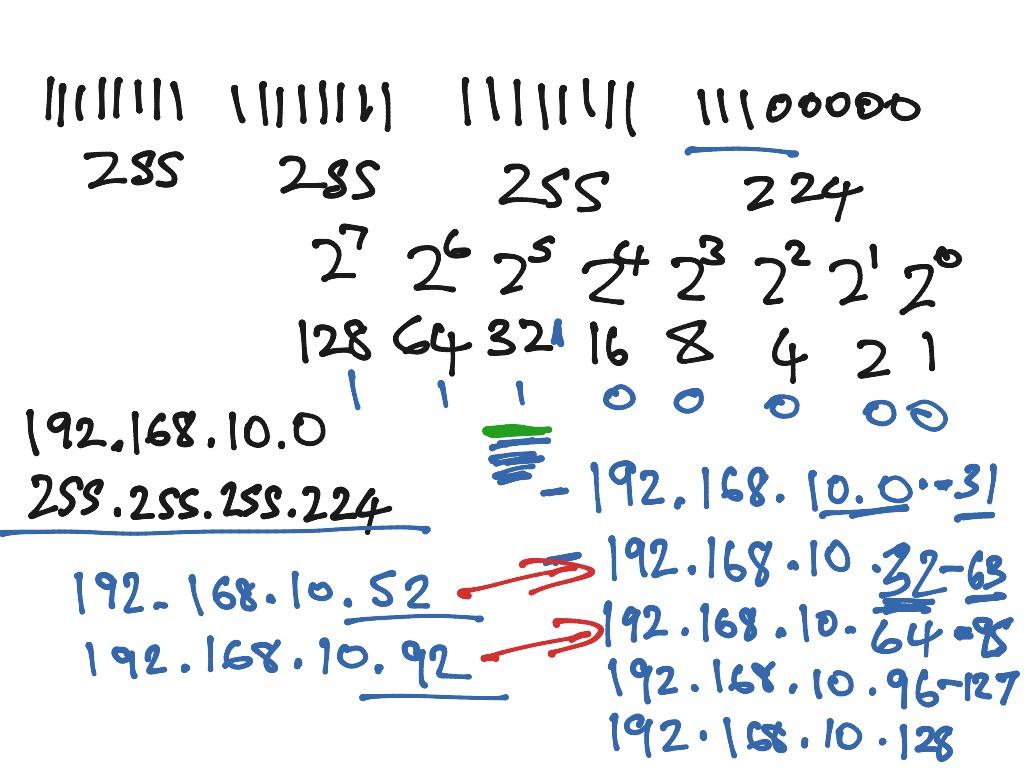 11111111 11111111 11111111 11100000
255 255 255 224
2^7 2^6 2^5 2^4 2^3 2^2 2^1 2^0
128 64 32 16 8 4 2 1
1 1 1 0 0 0 0 0
192.168.10.0
255.255.255.224
192.168.10.52
192.168.10.92
- 192.168.10.0--31
- 192.168.10.32-63
192.168.10.64-95
192.168.10.96-127
192.168.10.128